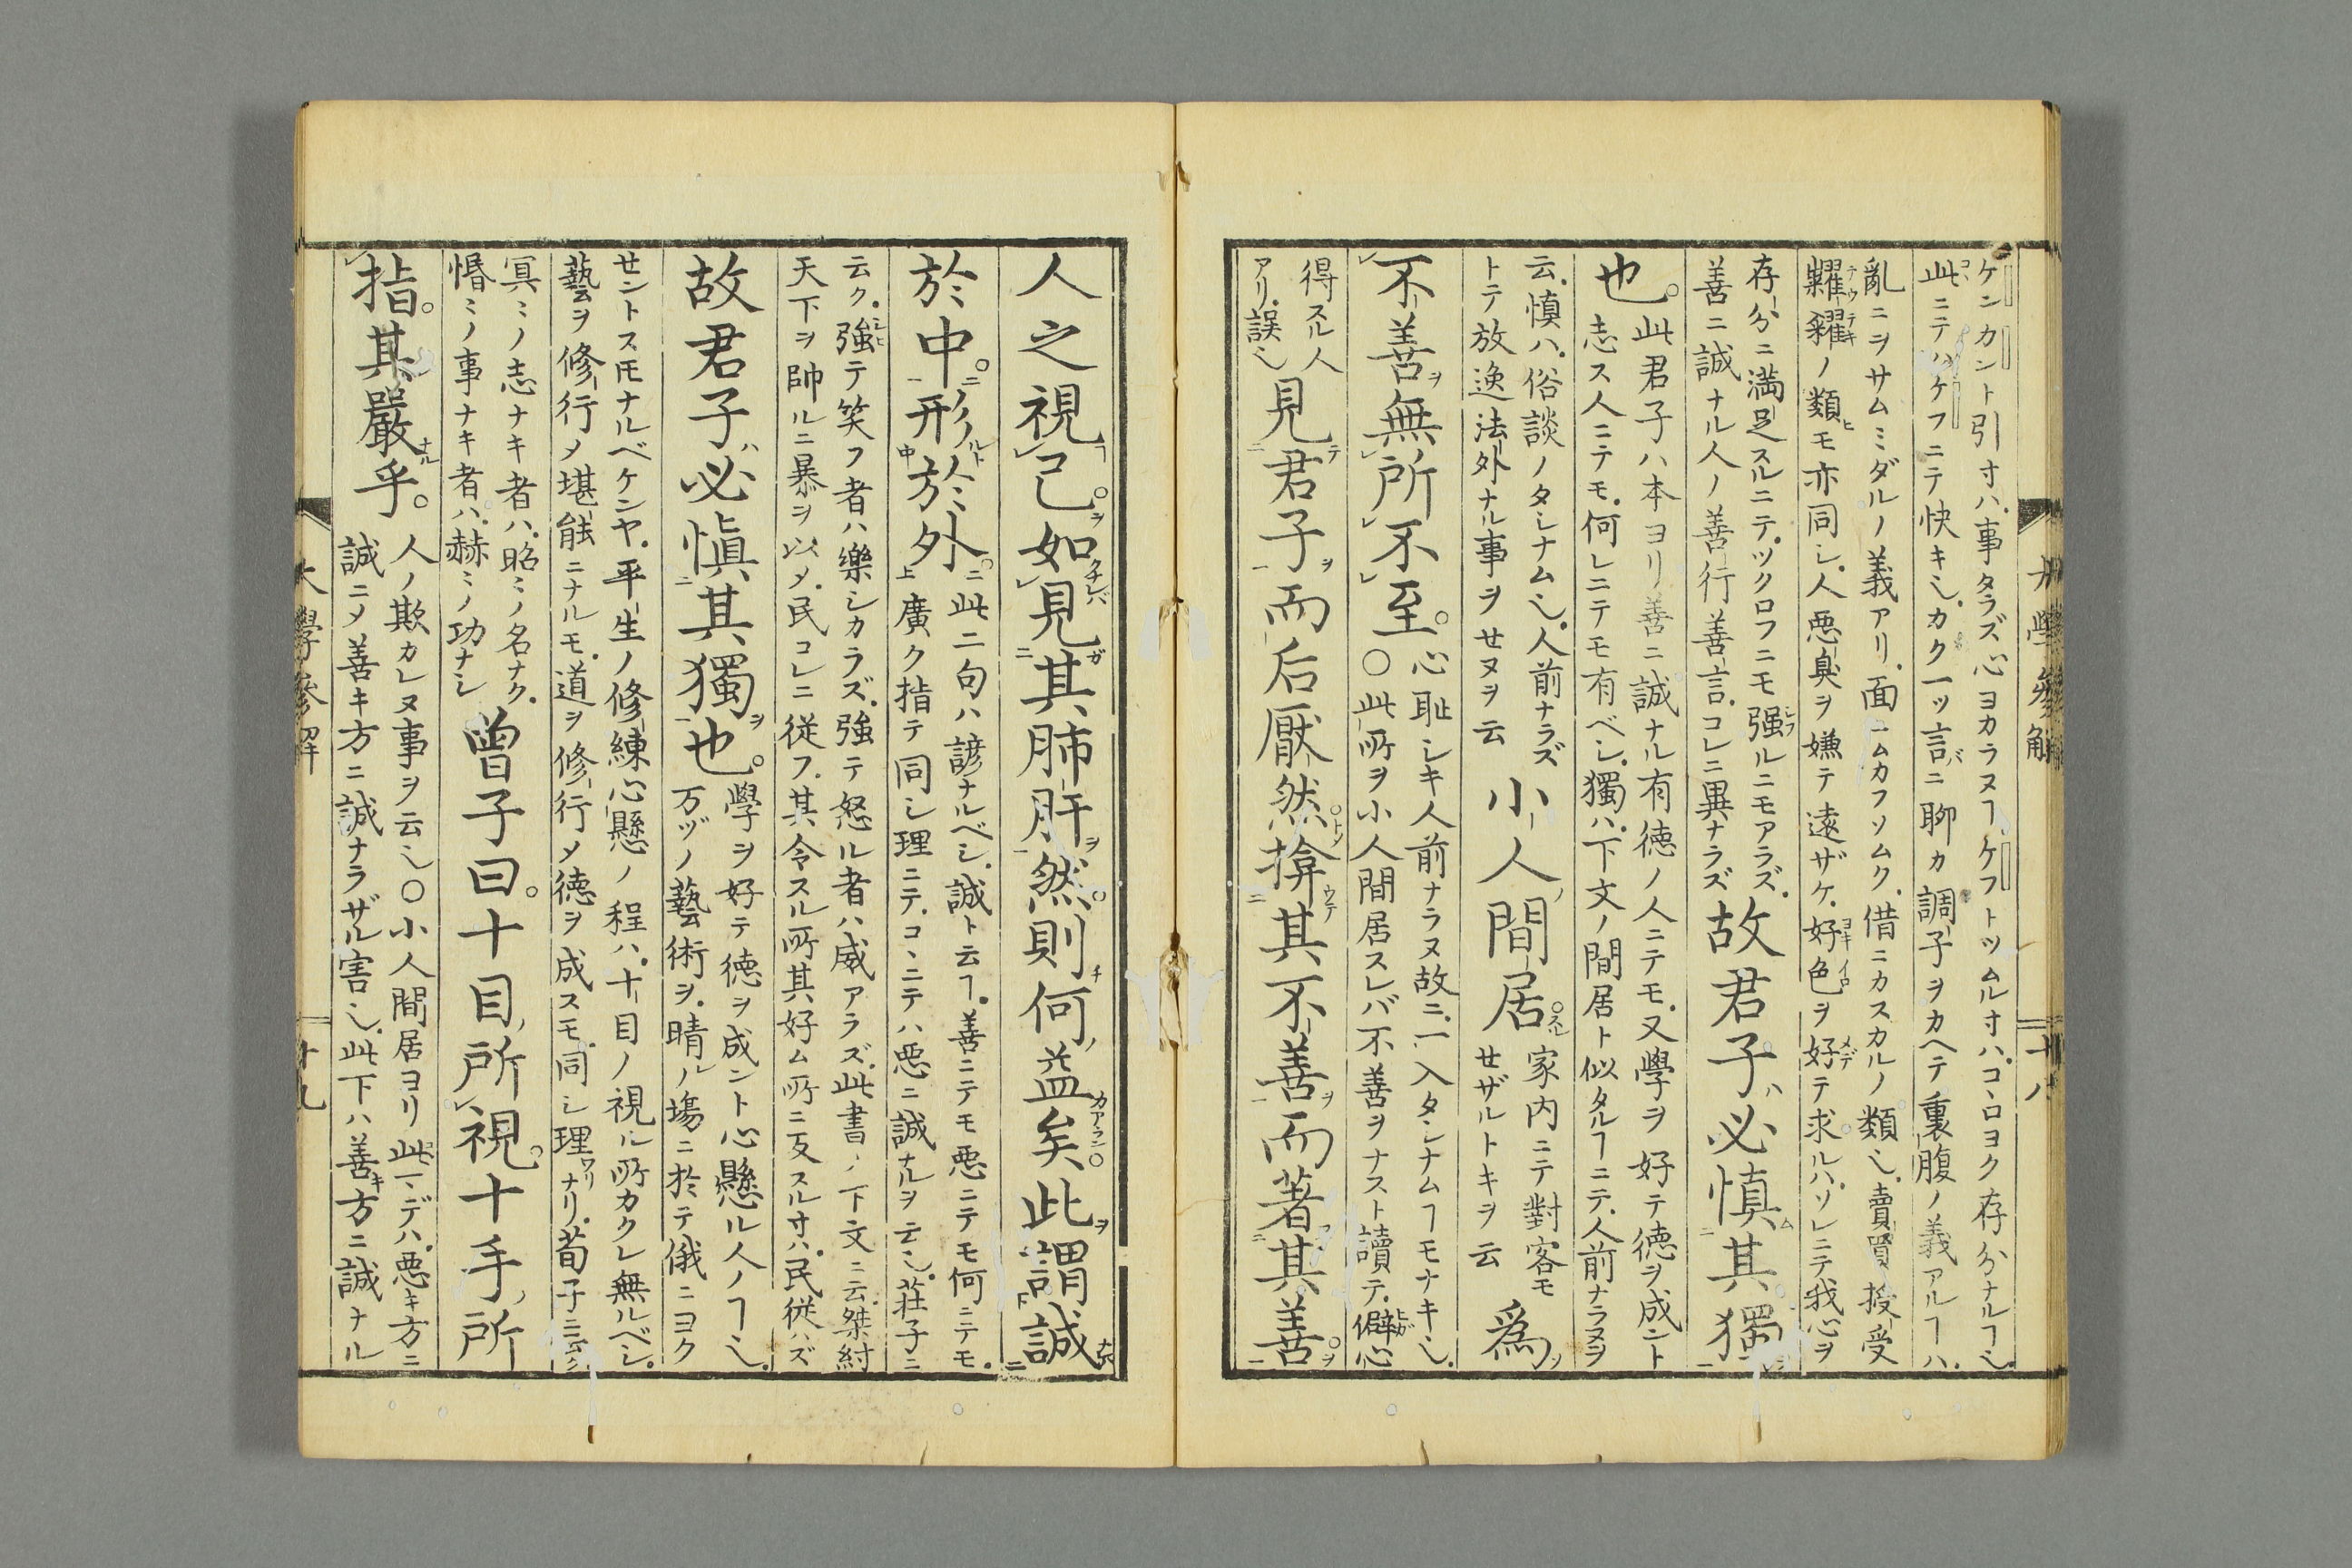 大學參解
十八
ケンカント引寸ハ事タラズ心ヨカラヌヿケフトツムル寸ハコヽロヨク存分ナルヿ也
此ニテハケフニテ快キ也カク一ッ言ニ聊カ調子ヲカヘテ裏腹ノ義アルヿハ
亂ニヲサムミダルノ義アリ面ニムカフソムク借ニカスカルノ類也賣買授受
糶糴ノ類モ亦同シ人悪臭ヲ嫌テ遠ザケ好色ヲ好テ求ルハソレニテ我心ヲ
存分ニ満足スルニテツクロフニモ强ルニモアラズ
善ニ誠ナル人ノ善行善言コレニ異ナラズ
故君子ハ必慎其獨
也
此君子ハ本ヨリ善ニ誠ナル有徳ノ人ニテモ又學ヲ好テ徳ヲ成ント
志ス人ニテモ何レニテモ有ベシ獨ハ下文ノ間居ト似タルヿニテ人前ナラヌヲ
云慎ハ俗談ノタシナム也人前ナラズ
トテ放逸法外ナル事ヲセヌヲ云
小人間居
家内ニテ對客モ
セザルトキヲ云
爲
不善無所不至
心恥シキ人前ナラヌ故ニ一入タシナムヿモナキ也
〇此所ヲ小人間居スレバ不善ヲナスト讀テ僻心
得スル人
アリ誤也
見君子而后厭然揜其不善而著其善
人之視己如見其肺肝然則何益矣此謂誠
於中形於外
此二句ハ諺ナルベシ誠ト云ヿ善ニテモ悪ニテモ何ニテモ
廣ク指テ同シ理ニテコヽニテハ悪ニ誠ナルヲ云也莊子ニ
云ク強テ笑フ者ハ樂シカラズ強テ怒ル者ハ威アラズ此書ノ下文ニ云桀紂
天下ヲ帥ルニ暴ヲ以メ民コレニ従フ其令スル所其好ム所ニ反スル寸ハ民従ハズ
故君子必愼其獨也
學ヲ好テ徳ヲ成ント心懸ル人ノヿ也
万ヅノ藝術ヲ晴ノ塲ニ於テ俄ニヨク
セントスルモナルベケンヤ平生ノ修練心懸ノ程ハ十目ノ視ル所カクレ無ルベシ
藝ヲ修行メ堪能ニナルモ道ヲ修行メ徳ヲ成スモ同シ理ナリ荀子ニ云ク
冥ミノ志ナキ者ハ昭ミノ名ナク
惛ミノ事ナキ者ハ赫ミノ功ナシ
曽子曰十目所視十手所
指其嚴乎
人ノ欺カレヌ事ヲ云也〇小人間居ヨリ此マデハ悪キ方ニ
誠ニメ善キ方ニ誠ナラザル害也此下ハ善キ方ニ誠ナル
大學參解
十九